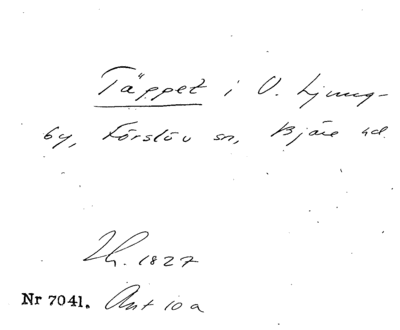 Täppet i V. Ljung-
by, Förslöv sn, Bjäre hd.
Th. 1827
Nr 7041. Ant 10 a